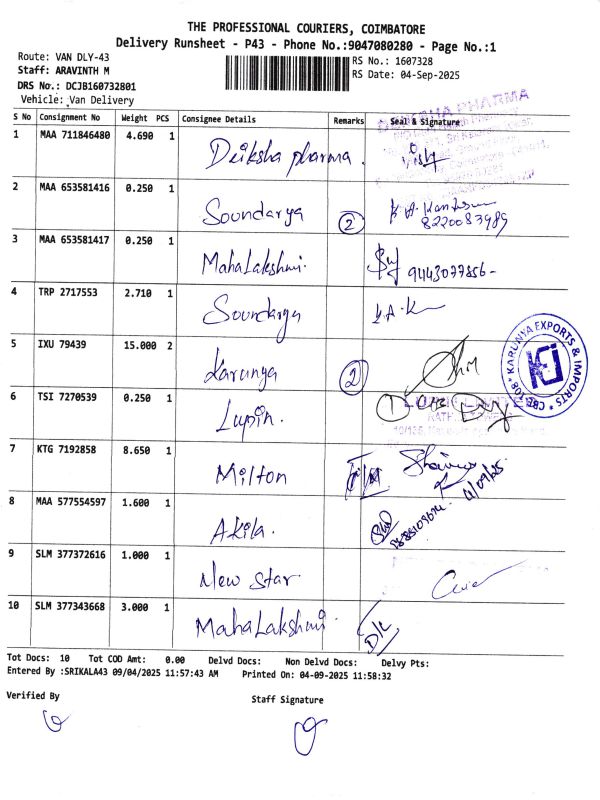 THE PROFESSIONAL COURIERS, COIMBATORE
Delivery Runsheet - P43 - Phone No.:9047080280 - Page No.:1
Route: VAN DLY-43
RS No.: 1607328
Staff: ARAVINTH M
RS Date: 04-Sep-2025
DRS No.: DCJB160732801
Vehicle: Van Delivery
S No Consignment No Weight PCS Consignee Details Remarks Seal & Signature
1 MAA 711846480 4.690 1 Deiksha pharma.
2 MAA 653581416 0.250 1 Soundarya 2
8220083989
3 MAA 653581417 0.250 1 MahaLakshmi. 9443077856-
4 TRP 2717553 2.710 1 Soundarya
5 IXU 79439 15.000 2 Karunya 2
KARUNYA EXPORTS & IMPORTS
6 TSI 7270539 0.250 1 Lupin.
7 KTG 7192858 8.650 1 Milton
4/09/25
8 MAA 577554597 1.600 1 Akila.
9 SLM 377372616 1.000 1 New Star.
10 SLM 377343668 3.000 1 MahaLakshmi D/c
Tot Docs: 10 Tot COD Amt: 0.00 Delvd Docs: Non Delvd Docs: Delvy Pts:
Entered By :SRIKALA43 09/04/2025 11:57:43 AM Printed On: 04-09-2025 11:58:32
Verified By
Staff Signature